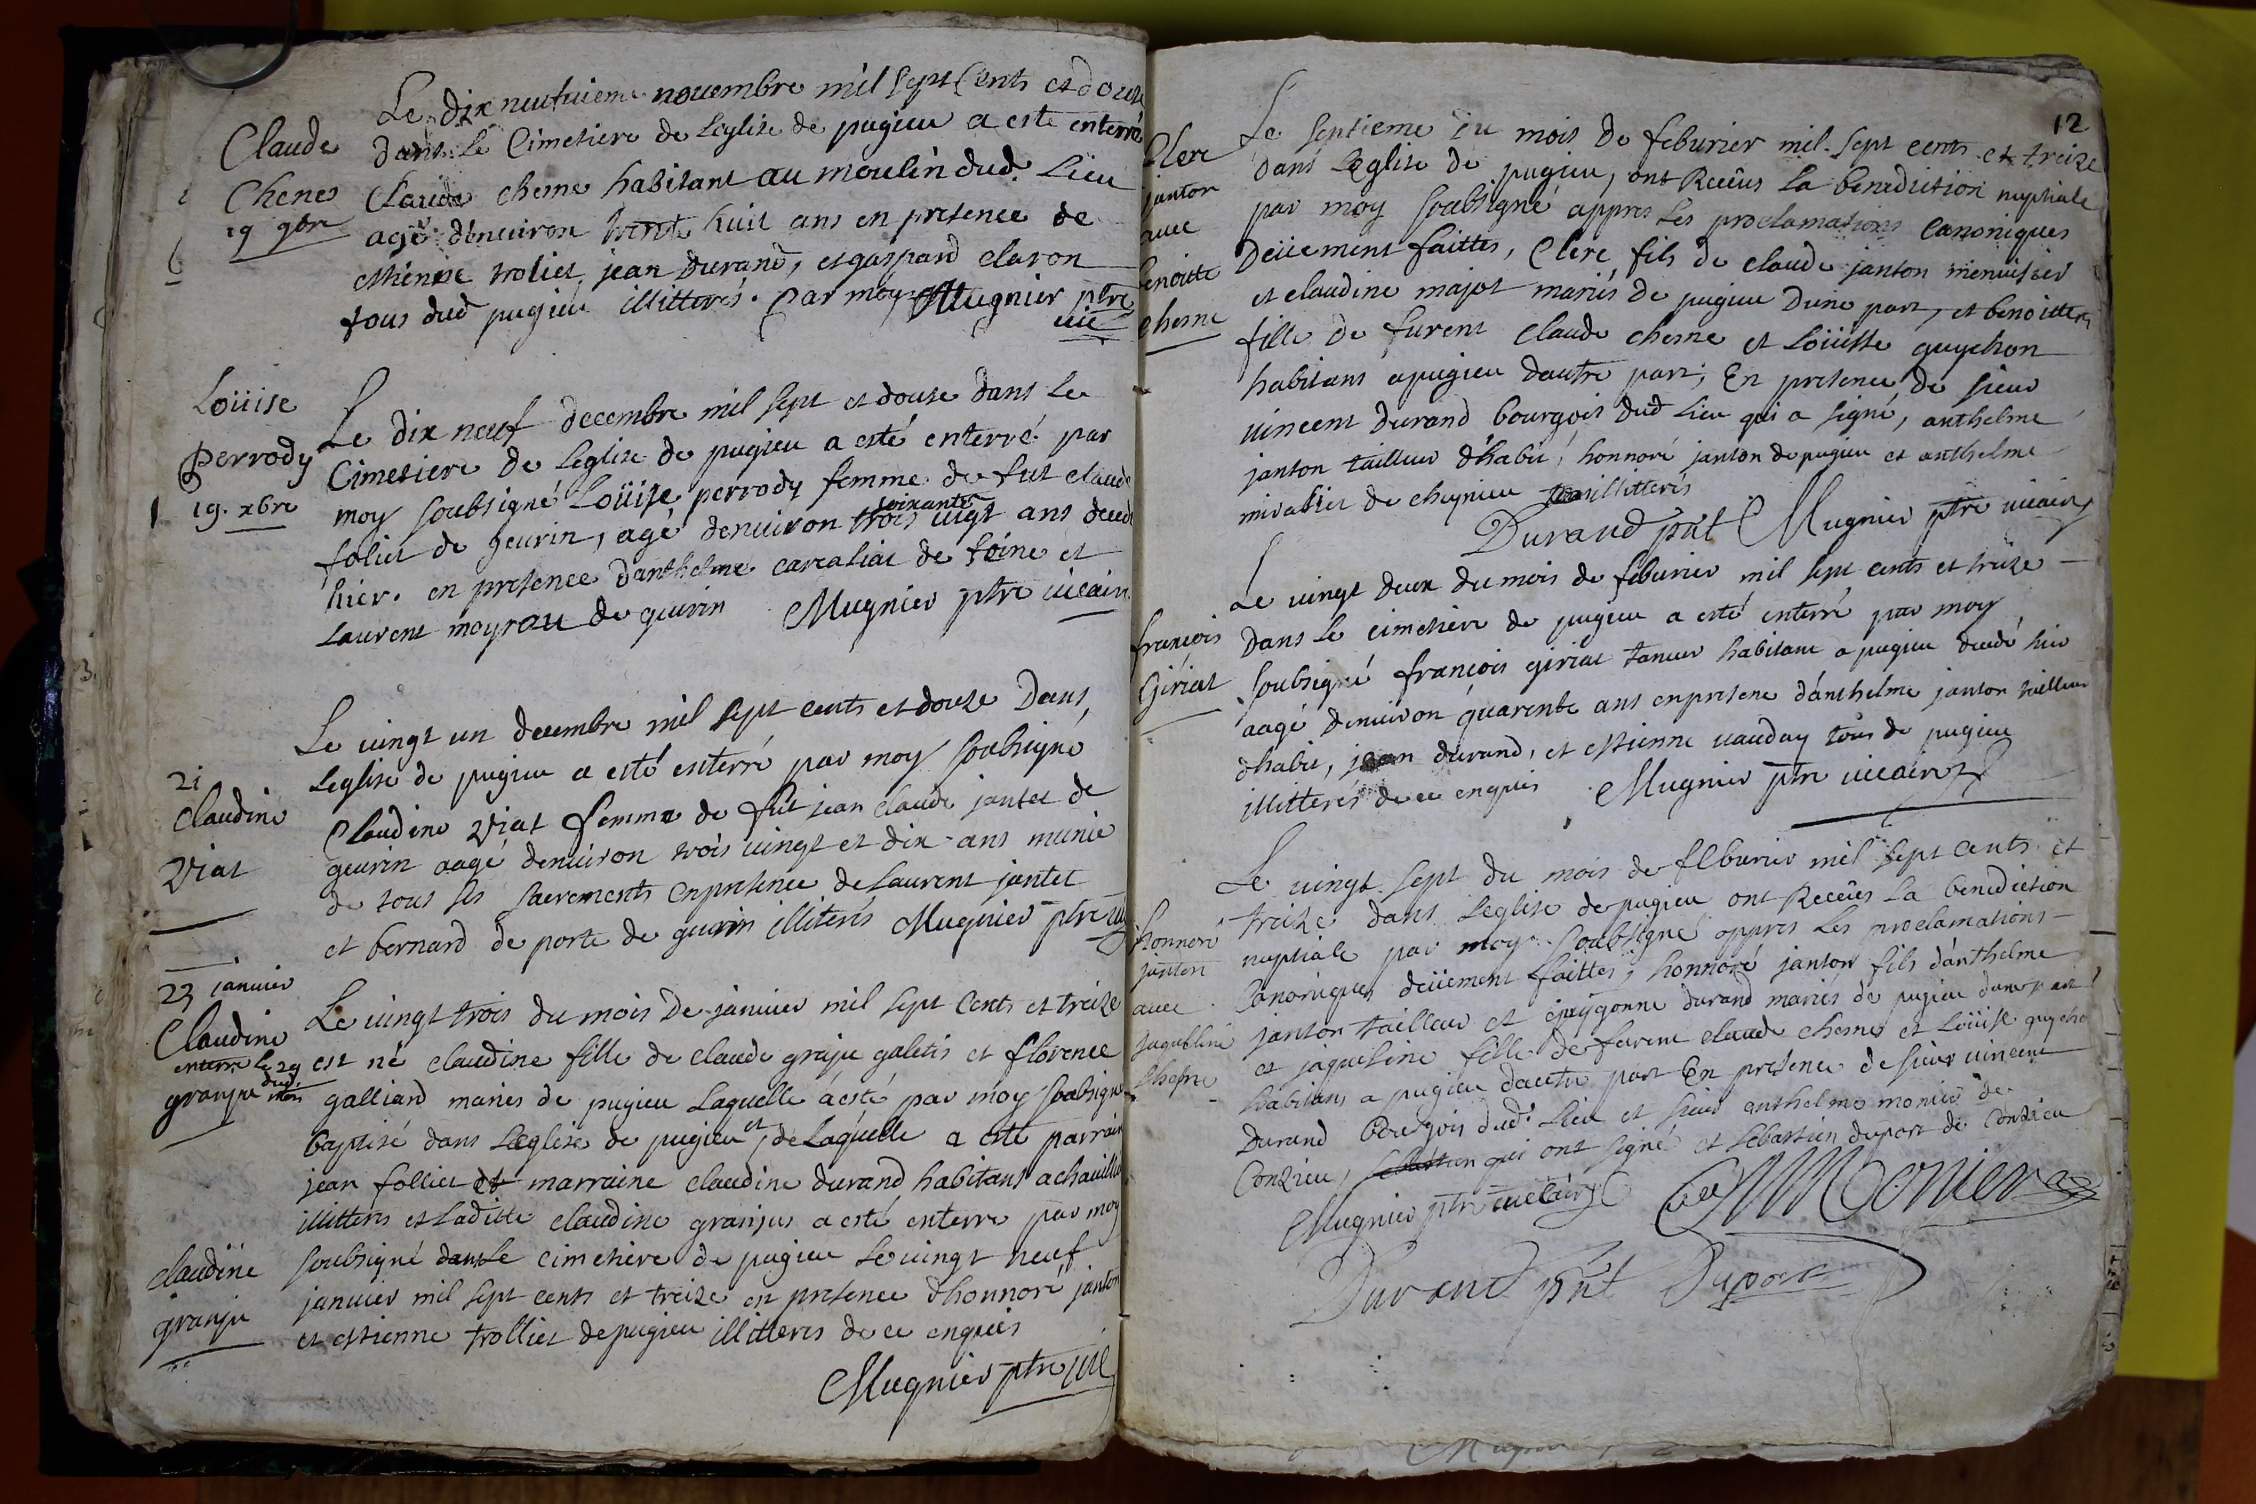 Claude
Chene
19 9bre
Le dix neufuieme nouembre mil sept Cents et douze
dans Le Cimetiere de Leglise de pugieu a esté enterré
Claude chesne habitant au moulin dud. Lieu
agé denuiron trente huit ans en presence de
esthienne troliet, jean durand, et gaspard claron
tous dud pugieu illitterés. par moy Mugnier ptre
uic
Loüise
Perrody
19. xbre
Le dix neuf decembre mil sept et douze dans Le
Cimetiere de Leglise de pugieu a esté enterré par
moy soubsigné Loüise perrody femme de fut claude
soixante
foliet de geurin, agé denuiron trois uigt ans decedé
hier. en presence danthelme carcaliat de et
Laurent moyrou de geurin Mugnier ptre uicaire
21
Claudine
Viat
Le uingt un decembre mil sept cents et douze Dans
Leglise de pugieu a esté enterré par moy soubsigné
Claudine Viat femme de fut jean claude jantet de
geurin aagé denuiron trois uingt et dix ans munie
de tous ses sacrements en presence de Laurent jantet
et bernard de porte de geurin illiterés Mugnier ptre uic
23 januier
Claudine
enterre le 29
dud mois
granju
Le uingt trois du mois De januier mil sept Cents et treize
est né claudine fille de claude graju galetis et florence
galliard mariés de pugieu Laquelle a esté par moy soubsigné
baptisé dans Leglise de pugieu et de Laquelle a esté parrain
jean folliet et marraine claudine durand habitans a
illitteres et Laditte claudine granjus a esté enterre par moy
soubsigné dans Le cimetiere de pugieu Le uingt neuf
januier mil sept cents et treize en presence dhonnoré janton
et estienne trolliet de pugieu illitteres de ce enquis
Mugnier ptre uic
claudine
granju
12
Clere
janton
auec
benoitte
chesne
Le septieme du mois de feburier mil sept cents et treize
dans Leglise de pugieu, ont Receus La benediction nuptiale
par moy soubsigné appres Les proclamations Canoniques
deüement faittes, Clere fils de claude janton menuisier
et claudine majot mariés de pugieu Dune part, et benoitte
fille de furent claude chesne et Loüisse guychon
habitans a pugieu dautre part; En presence de sieur
uincent durand bourgois dud Lieu qui a signé, anthelme
janton tailleur d'habit, honnoré janton de pugieu et anthelme
mirabliet de cheynieu illitterés
Durand pnt Mugnier ptre uicaire
françois
Giriat
Le uingt deux du mois de feburier mil sept cents et treize
Dans Le cimetiere de pugieu a esté enterré par moy
soubsigné françois giriat taneur habitant a pugieu decedé hier
aagé denuiron quarente ans en presence d'anthelme janton tailleur
dhabit, jean durand, et estienne uauday tous de pugieu
illitterés de ce enquis Mugnier ptre uicaire
honnoré
janton
auec
jaquelline
chesne
Le uingt sept du mois de feburier mil sept cents et
treize dans Leglise de pugieu ont Receues La benediction
nuptiale par moy soubsigné appres Les proclamations
Canoniques deüement faittes; honnoré janton fils d'anthelme
janton tailleur et durand mariés de pugieu dune part
et jaqueline fille de furent claude chesne et Loüise guychon
habitans a pugieu dautre part En presence de sieur uincent
Durand bourgois dud. Lieu et sieur anthelme monier de
Conzieu, sebastien qui ont signé et sebastien duport de Conzieu
Mugnier ptre uicaire Monier
Durand pnt Duport